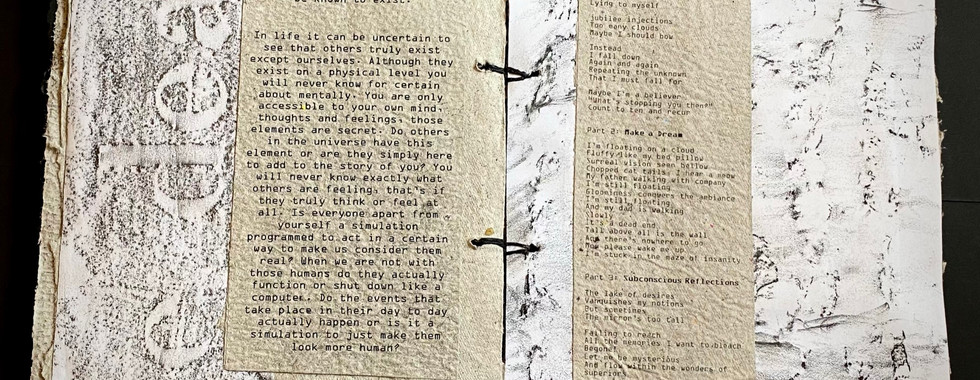 be known to exist.
In life it can be uncertain to
see that others truly exist
except ourselves. Although they
exist on a physical level you
will never know for certain
about mentally. You are only
accessible to your own mind,
thoughts and feelings, those
elements are secret. Do others
in the universe have this
element or are they simply here
to add to the story of you? You
will never know exactly what
others are feeling, that's if
they truly think or feel at
all. Is everyone apart from
yourself a simulation
programmed to act in a certain
way to make us consider them
real? When we are not with
those humans do they actually
function or shut down like a
computer. Do the events that
take place in their day to day
actually happen or is it a
simulation to just make them
look more human?
lying to myself
jubilee injections
Too many clouds
Maybe I should bow
Instead
I fall down
Again and again
Repeating the unknown
That I must fall for
Maybe I'm a believer
"What's stopping you then?"
Count to ten and recur
Part 2: Make a Dream
I'm floating on a cloud
Fluffy like my bed pillow
Surreal vision seen bellow
Chopped cat tails, I hear a meow
My father walking with company
I'm still floating
Gloominess conquers the ambiance
I'm still floating
And my dad is walking
Slowly
To a dead end
Tall above all is the wall
And there's nowhere to go
Now please wake me up
I'm stuck in the maze of insanity
Part 3: Subconscious Reflections
The lake of desires
Vanquishes my notions
But sometimes
The mirror's too tall
Failing to reach
All the memories I want to bleach
Begone!
Let me be mysterious
And flow within the wonders of
superiors